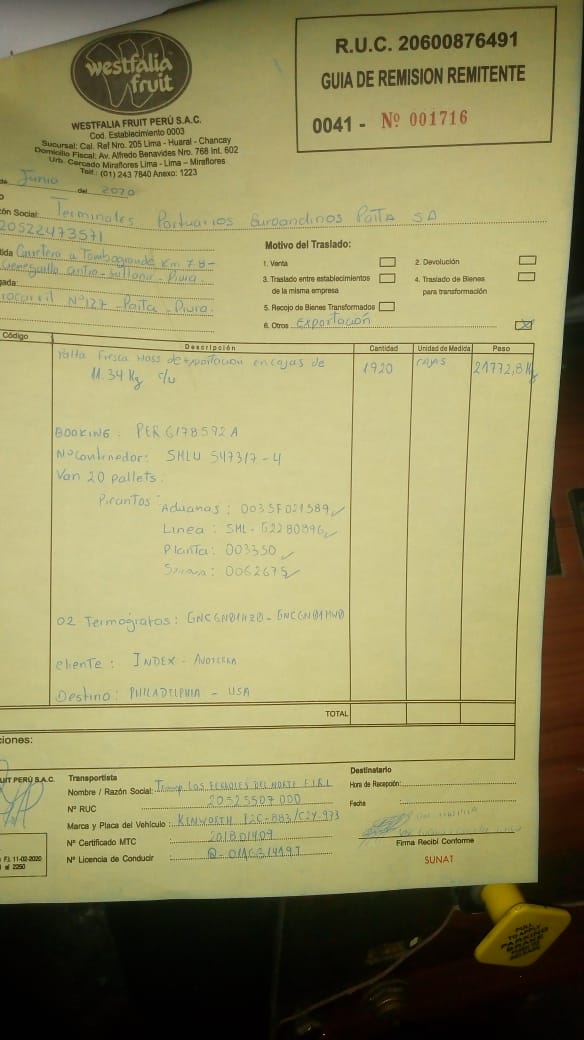 westfalia
fruit
WESTFALIA FRUIT PERÚ S.A.C.
Cod. Establecimiento 0003
Sucursal: Cal. Ref Nro. 205 Lima - Huaral - Chancay
Domicilio Fiscal: Av. Alfredo Benavides Nro. 768 Int. 602
Urb. Cercado Miraflores Lima - Lima - Miraflores
Telf.: (01) 243 7840 Anexo: 1223
R.U.C. 20600876491
GUIA DE REMISION REMITENTE
0041 - Nº 001716
de Junio del 2020
ón Social: Terminales Portuarios Euroandinos Paita SA
20522473571
tida Carretera a Tambogrande Km 7.8 -
Cieneguillo - Sullana - Piura
gada:
Nº 127 - Paita - Piura.
Motivo del Traslado:
1. Venta
2. Devolución
3. Traslado entre establecimientos
de la misma empresa
4. Traslado de Bienes
para transformación
5. Recojo de Bienes Transformados
6. Otros Exportación
Código Descripción Cantidad Unidad de Medida Peso
Palta Fresca Hass de exportacion en cajas de 1920 cajas 21772,8 Kg
11.34 Kg c/u
BOOKING: PER6178592A
Nº Contenedor: SMLU 547317-4
Van 20 pallets.
Pecantos:
Aduanas: 003SF021589
Linea: SML-G2280896
Planta: 003350
0062675
02 Termografos: GNCGN01H20 - GNCGN01MW0
cliente: INDEX -
Destino: PHILADELPHIA - USA
TOTAL
ciones:
UIT PERÚ S.A.C.
F.I. 11-02-2020
al 2250
Transportista
Nombre / Razón Social: Transp. Los FERNOLES DEL NORTE E.I.R.L
Nº RUC 20525507000
Marca y Placa del Vehículo: KENWORTH P2C-883/C2Y-973
Nº Certificado MTC
Nº Licencia de Conducir
Destinatario
Hora de Recepción:
Fecha
Firma Recibí Conforme
SUNAT
PULL
TO APPLY
PARKING
BRAKE